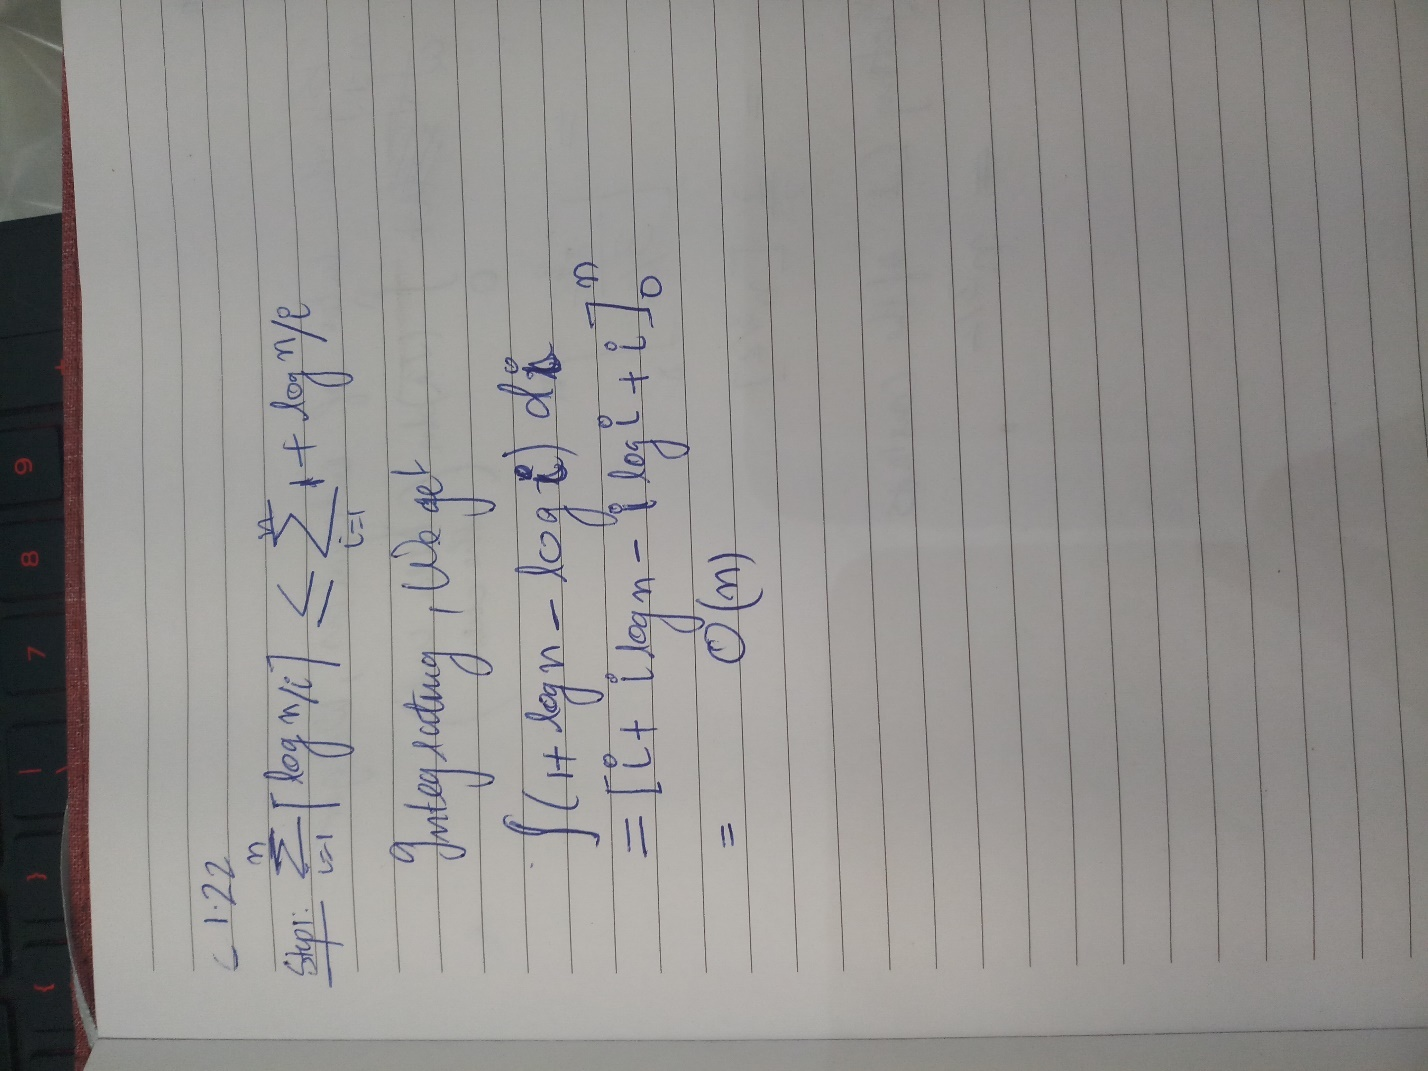 C 1.22
Step1: ∑_{i=1}^{n} ⌈log n/i⌉ ≤ ∑_{i=1}^{n} 1 + log n/i
Integrating, We get
∫(1+ log n − log i) di
= [i + i log n − i log i + i]_0^n
= O(n)
{ } | 7 8 9